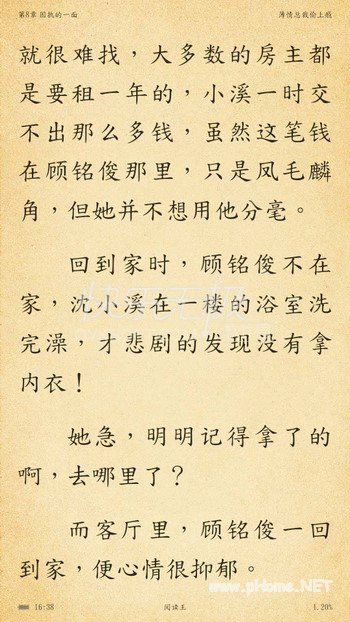 第8章 固执的一面 薄情总裁偷上瘾
就很难找，大多数的房主都
是要租一年的，小溪一时交
不出那么多钱，虽然这笔钱
在顾铭俊那里，只是凤毛麟
角，但她并不想用他分毫。
回到家时，顾铭俊不在
家，沈小溪在一楼的浴室洗
完澡，才悲剧的发现没有拿
内衣！
她急，明明记得拿了的
啊，去哪里了？
而客厅里，顾铭俊一回
到家，便心情很抑郁。
www.pHome.NET
16:38 阅读王 1.20%